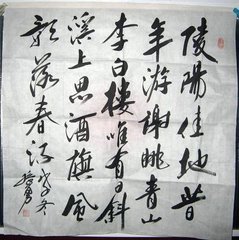 陵陽佳地昔
年游謝眺青山
李白樓唯有日斜
溪上思酒旗風
影落春流
戊子冬